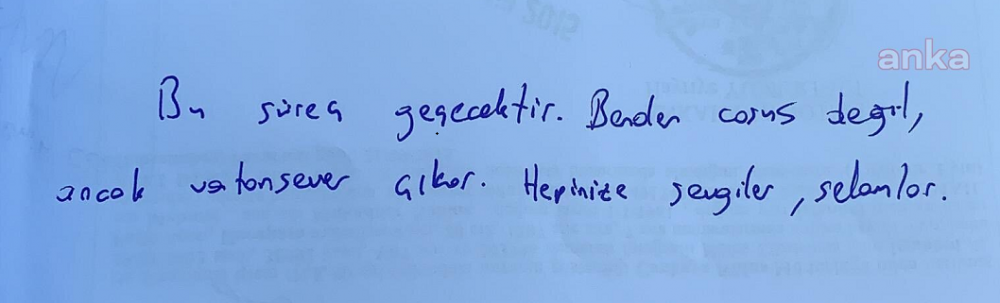 anka
Bu süreç geçecektir. Benden casus değil,
ancak vatansever çıkar. Hepinize sevgiler, selamlar.